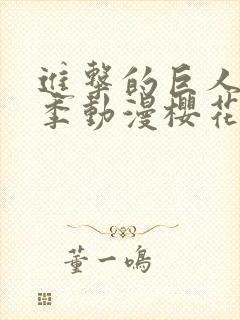 進擊的巨人
季動漫櫻花
董一鳴